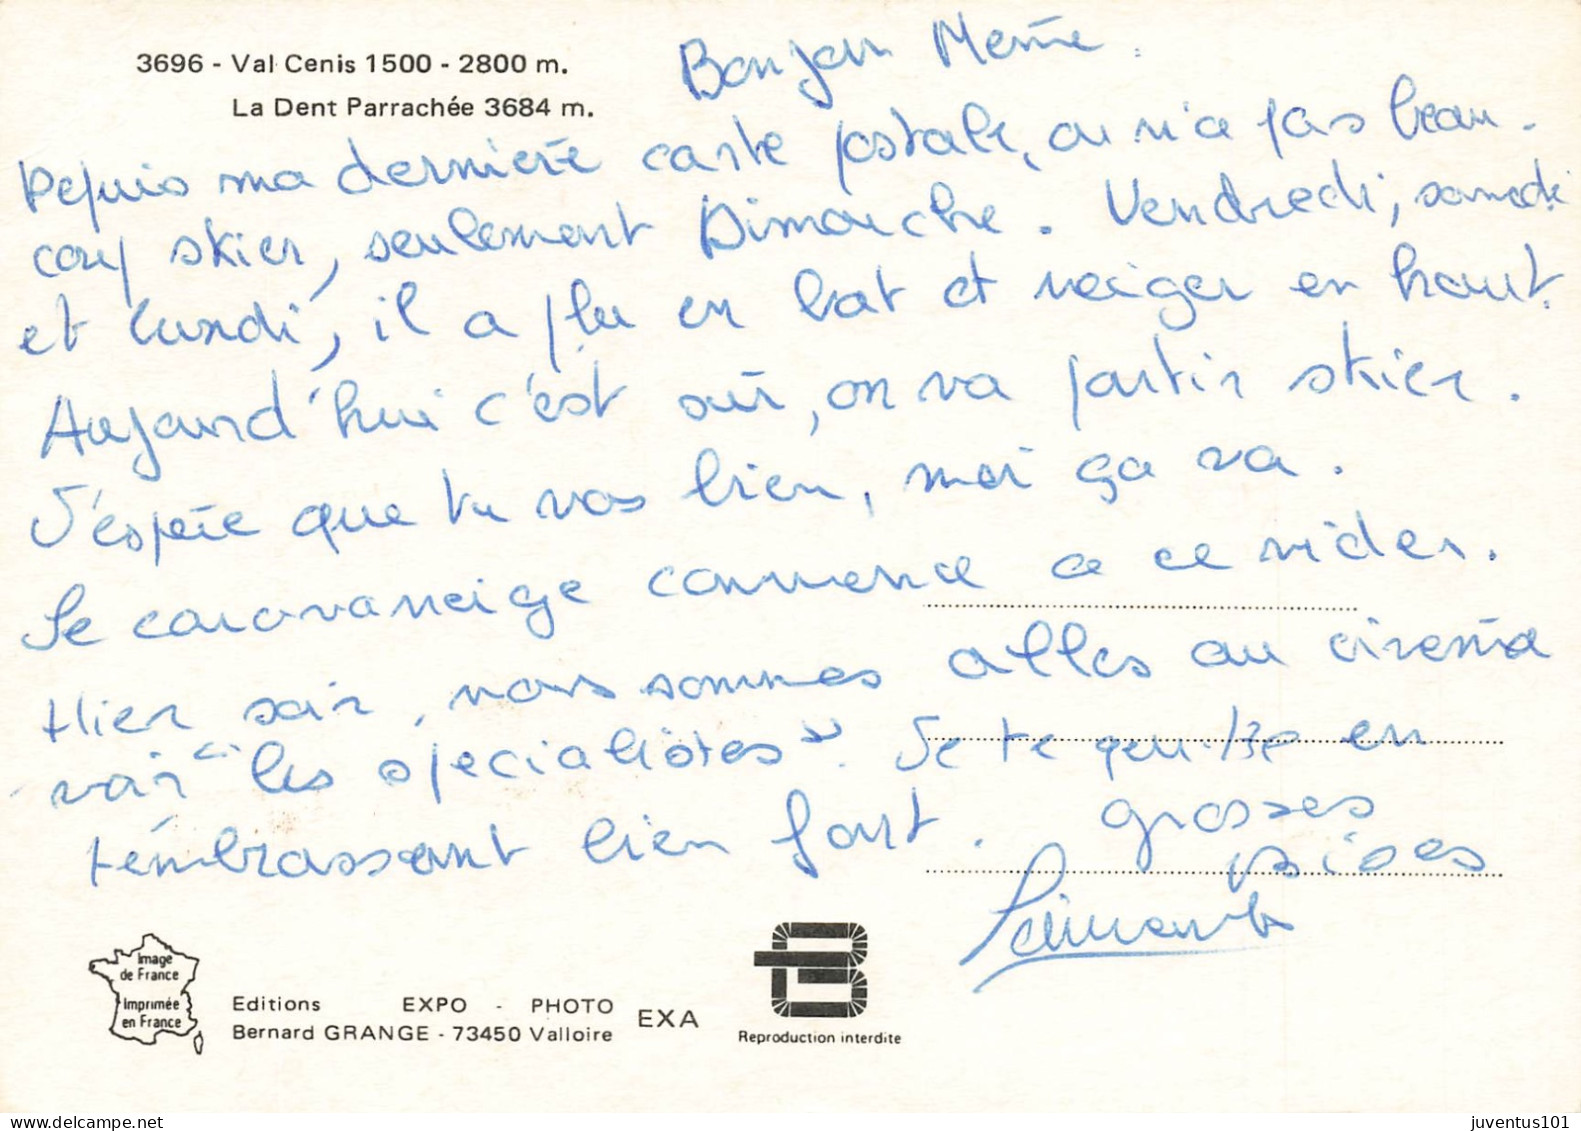 3696 - Val Cenis 1500 - 2800 m.
La Dent Parrachée 3684 m.
Bonjour Mémé.
Depuis ma dernière carte postale, on n'a pas beau-
coup skier, seulement Dimanche. Vendredi, samedi
et lundi, il a plu en bat et neiger en haut.
Aujourd'hui c'est sûr, on va partir skier.
J'espère que tu vas bien, moi ça va.
Le caravaneige commence a ce vider.
Hier soir, nous sommes alles au cinéma
voir "les spécialistes". Je te en
t'embrassant bien fort. grosses
bises
Image
de France
Imprimée
en France
Editions EXPO - PHOTO EXA
Bernard GRANGE - 73450 Valloire
Reproduction interdite
juventus101